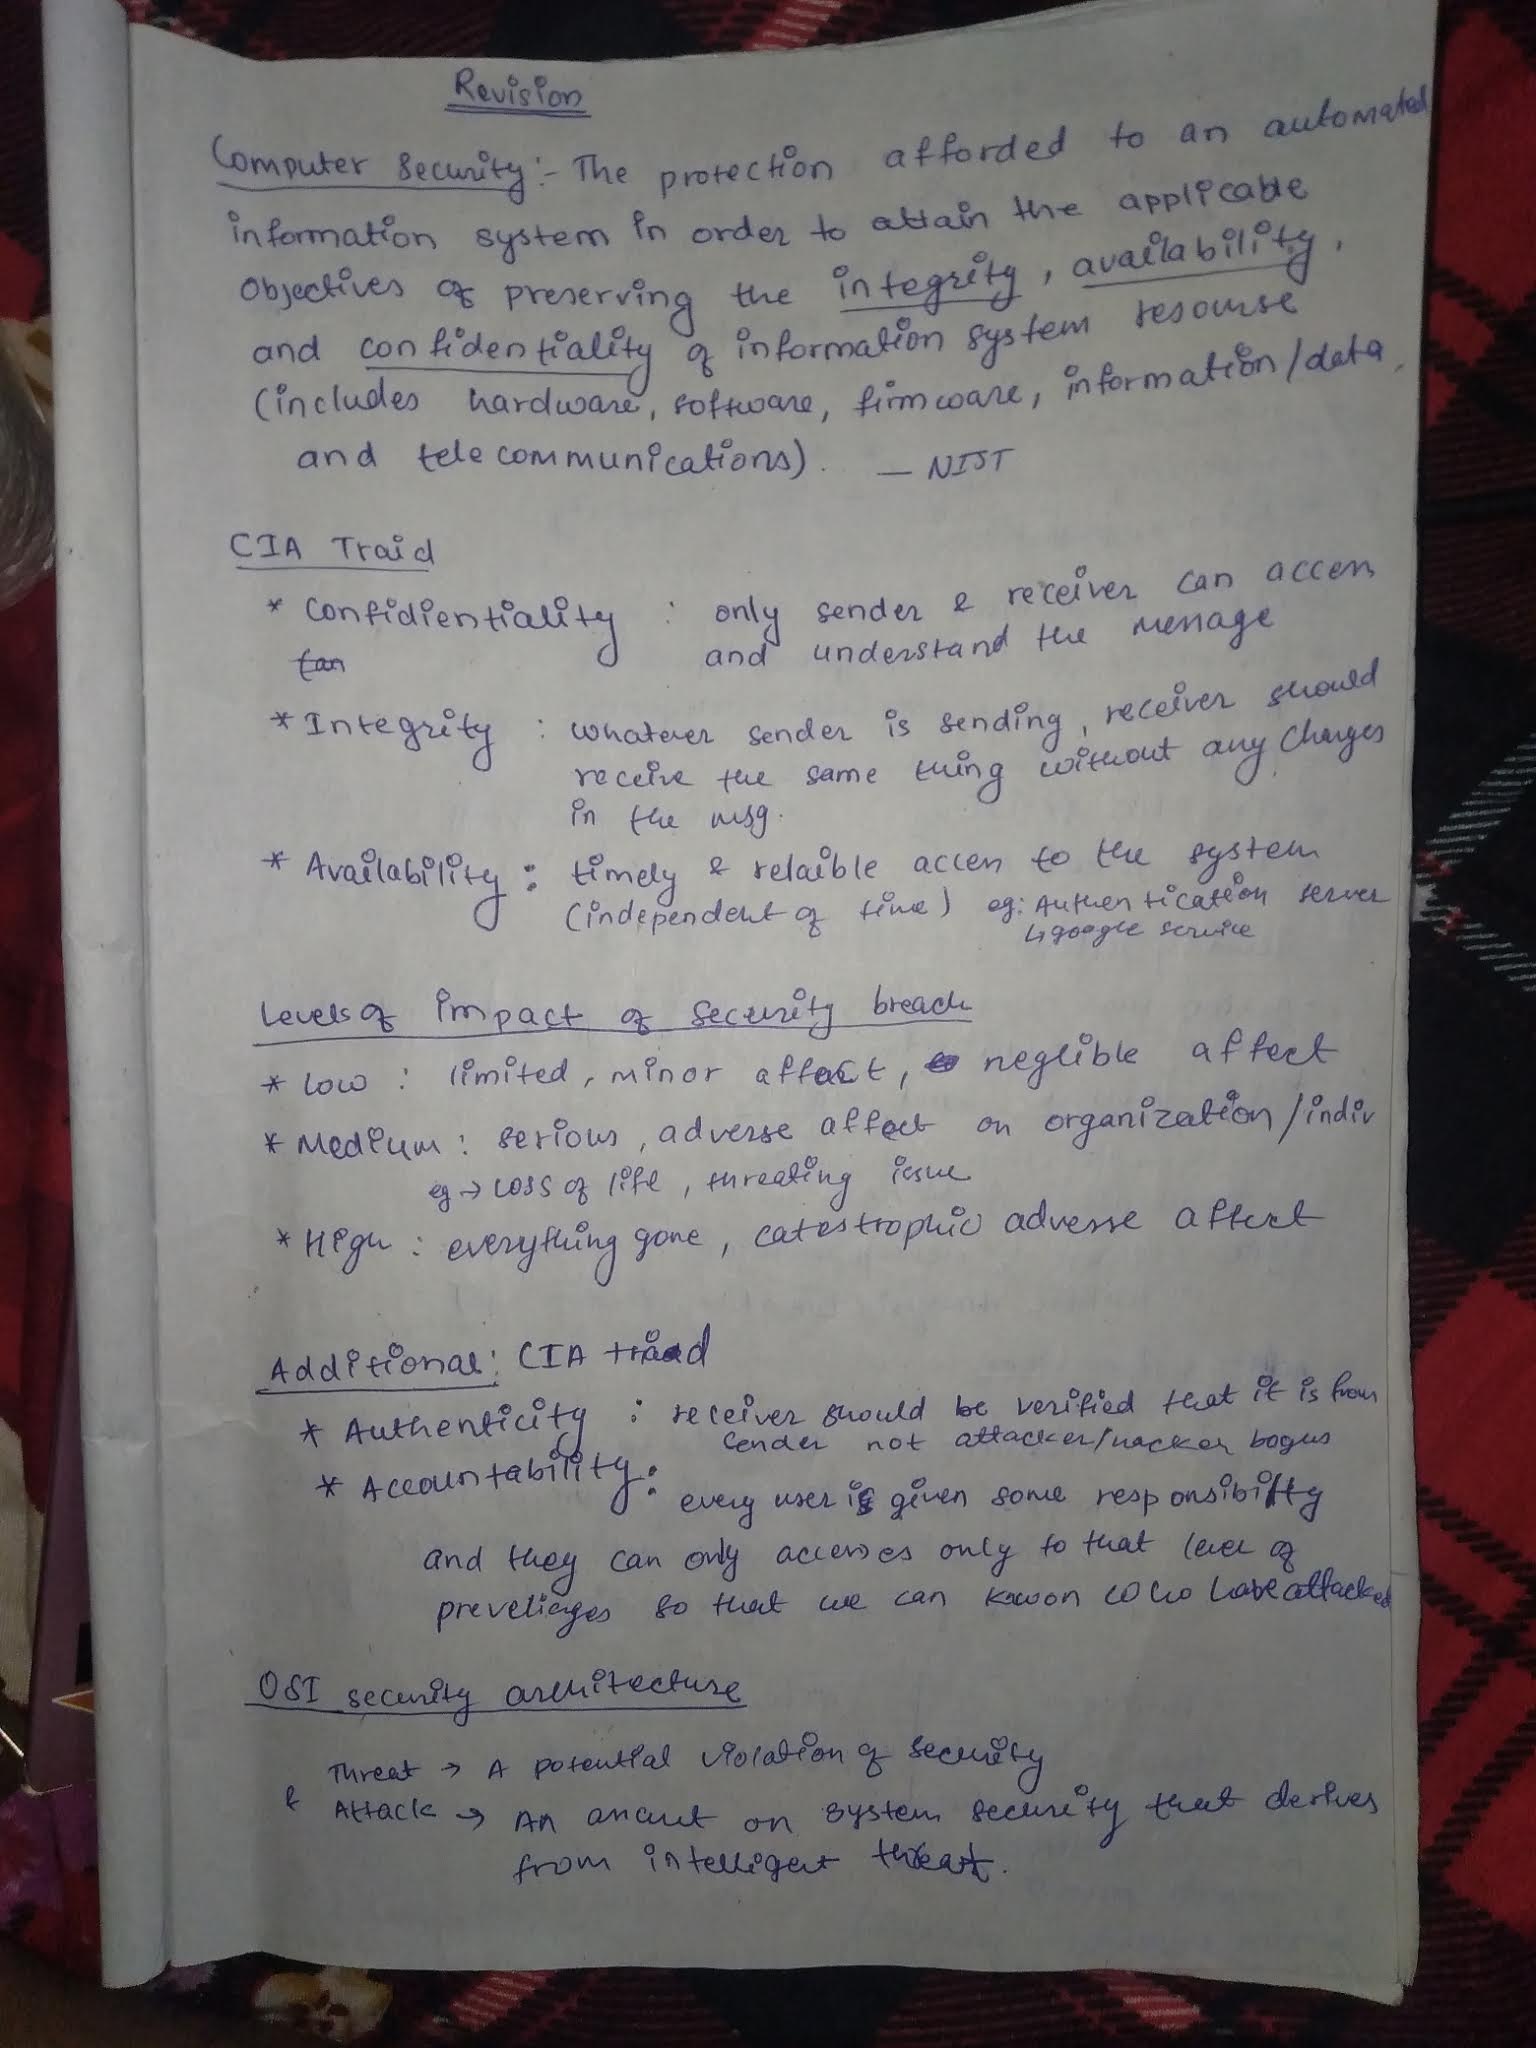 Revision
Computer Security:- The protection afforded to an automated
information system in order to attain the applicable
Objectives of preserving the integrity, availability,
and confidentiality of information system resourse
(includes hardware, software, firmware, information/data,
and telecommunications). — NIST
CIA Traid
* Confidientiality : only sender & receiver can access
and understand the message
* Integrity : whatever sender is sending, receiver should
receive the same thing without any changes
in the msg.
* Availability : timely & relaible access to the system
(independent of time) eg: Authentication server
↳ google service
Levels of impact of Security breach
* Low : limited, minor affect, neglible affect
* Medium : serious, adverse affect on organization/indiv
eg → Loss of life, threating issue
* High : everything gone, catestrophic adverse affect
Additional: CIA triad
* Authenticity : receiver should be verified that it is from
sender not attacker/hacker bogus
* Accountability :
every user is given some responsibility
and they can only accesses only to that level of
preveliages so that we can kwon who have attacked
OSI security architecture
Threat → A potential violation of security
& Attack → An on system security that derives
from intelligent threat.